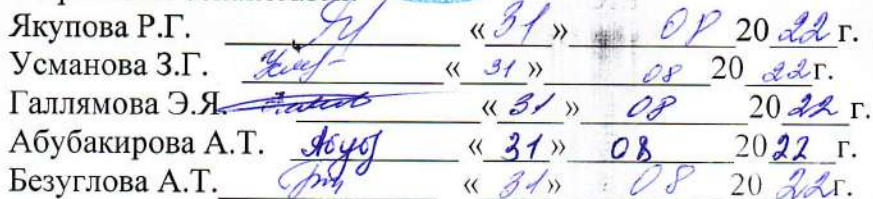 Якупова Р.Г. «31» 08 2022 г.
Усманова З.Г. «31» 08 2022г.
Галлямова Э.Я. «31» 08 2022 г.
Абубакирова А.Т. Абуб «31» 08 2022 г.
Безуглова А.Т. «31» 08 2022г.